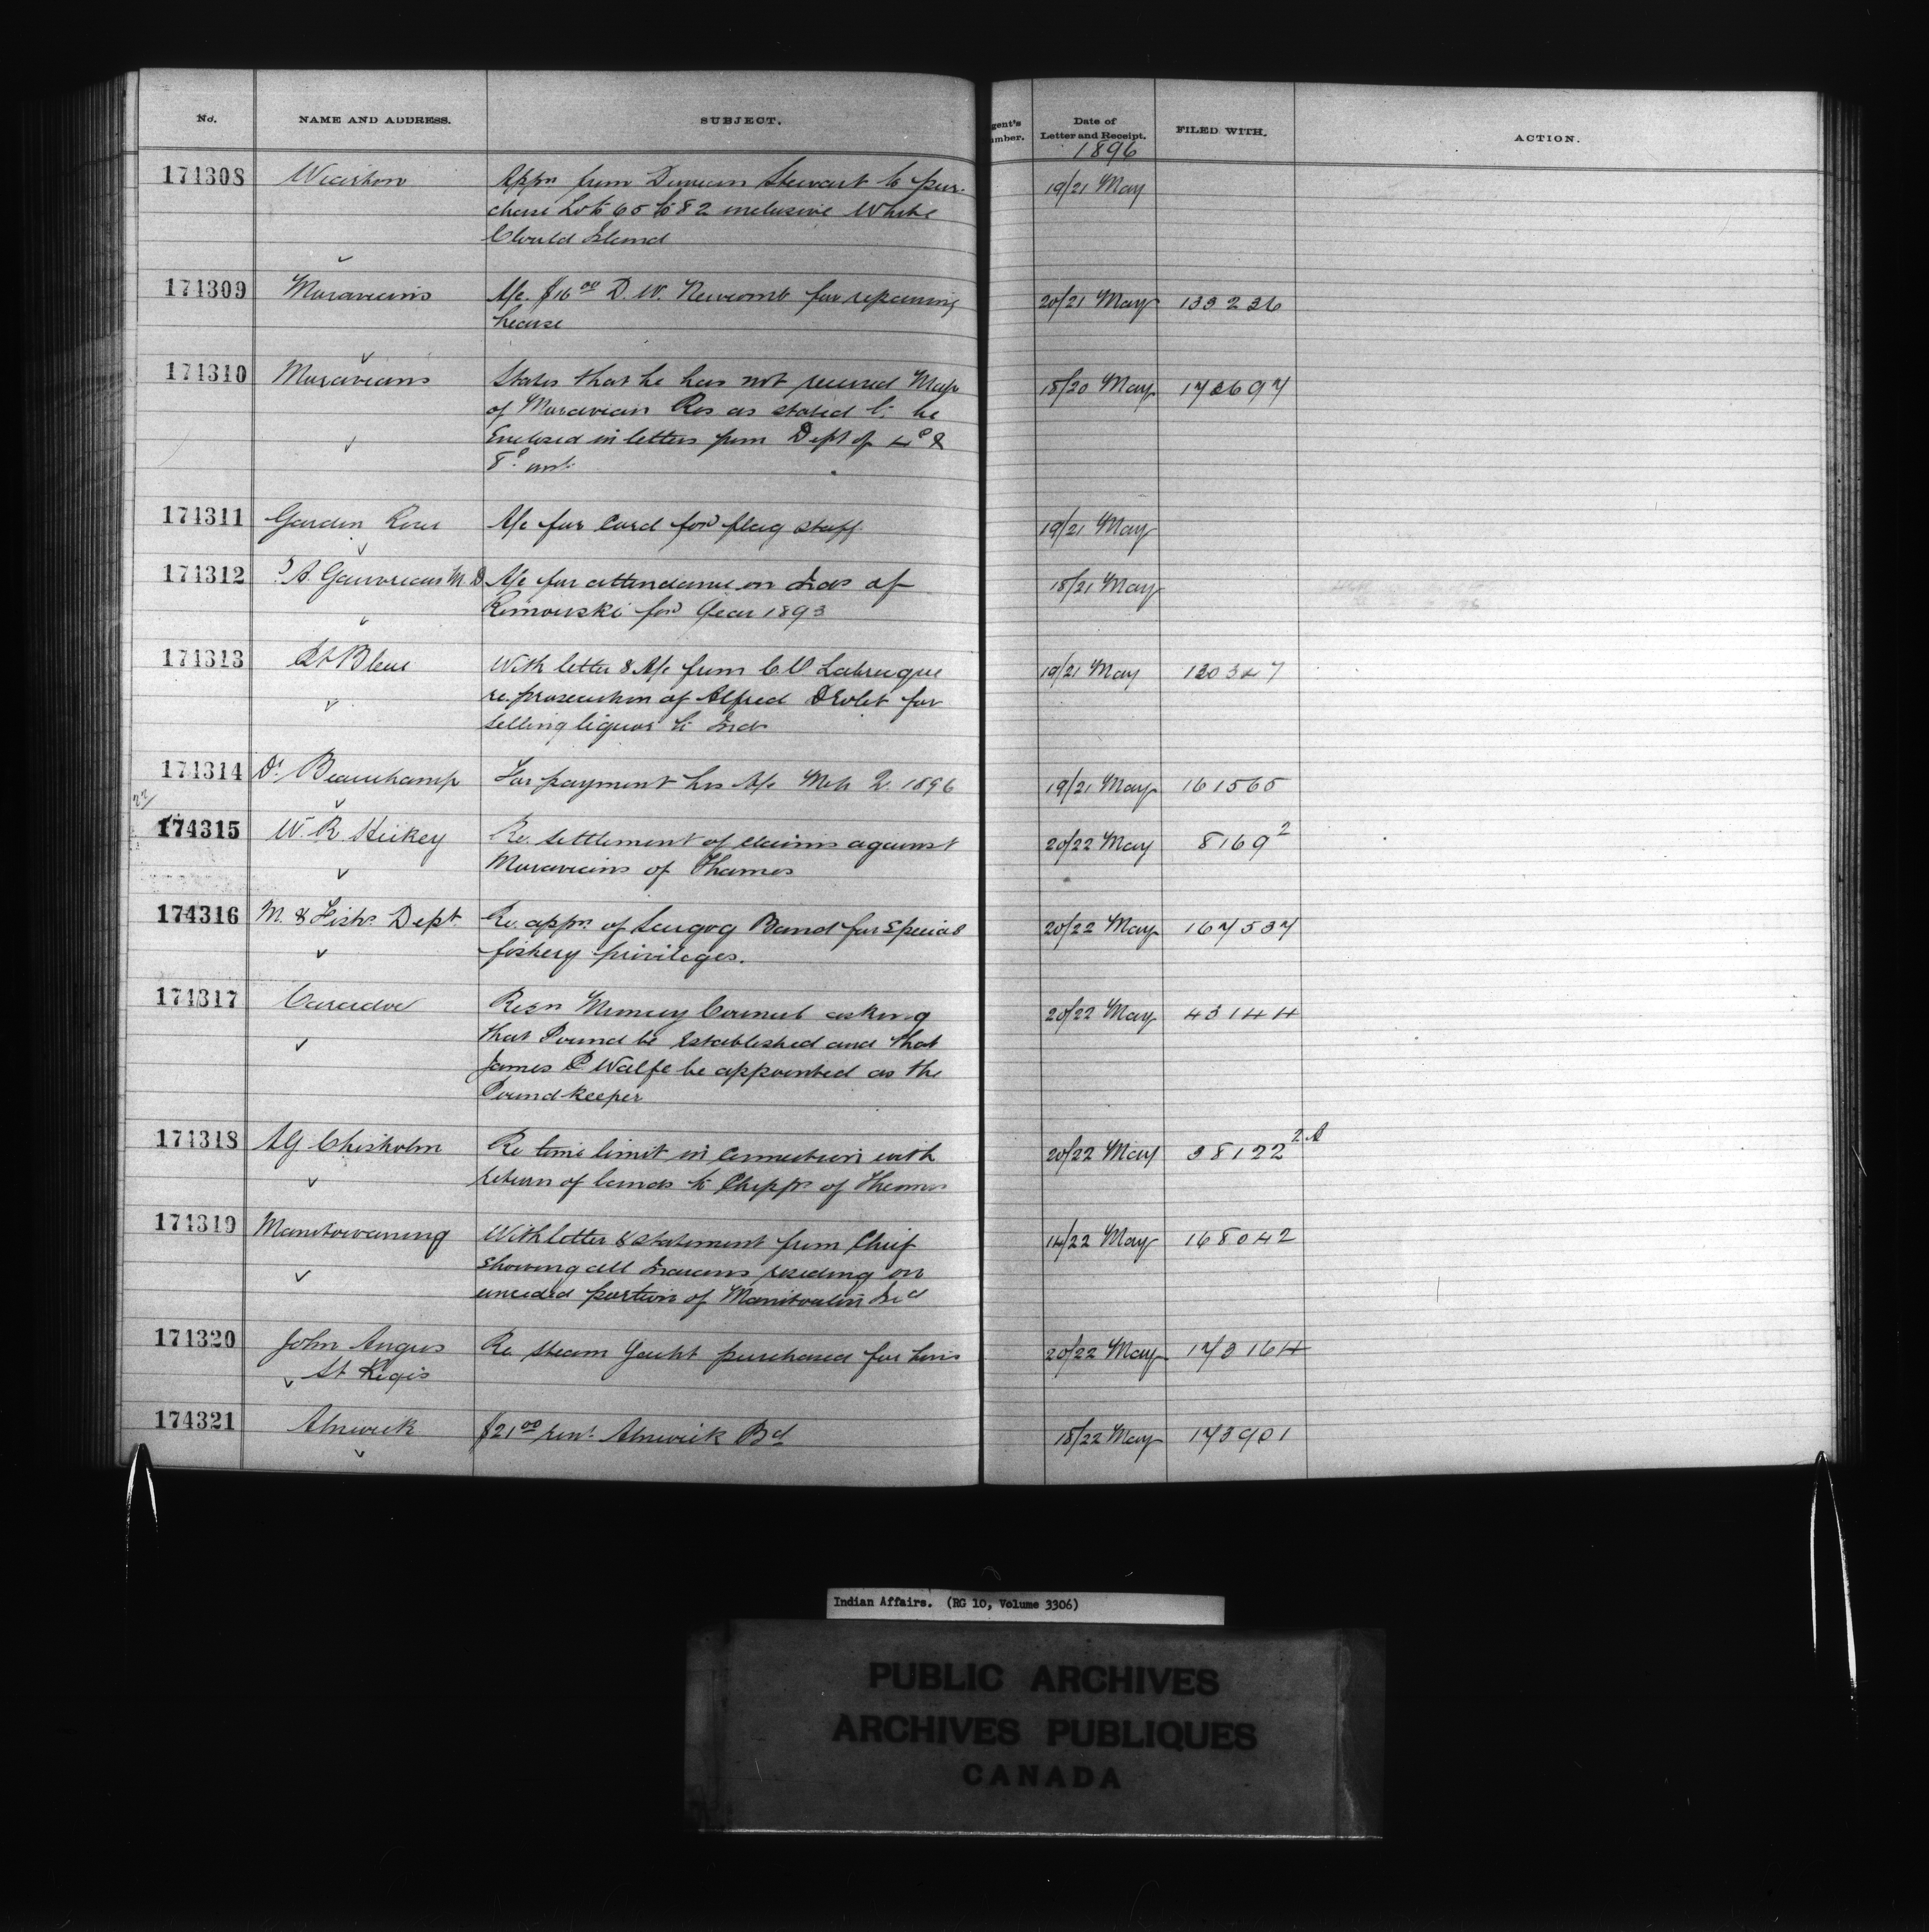 No. NAME AND ADDRESS. SUBJECT. gent's umber. Date of Letter and Receipt. FILED WITH. ACTION.
1896
174308 Wiarton Appn from Duncan Stewart to pur-
chase Lots 65 to 82 inclusive White
Clould Island
19/21 May
174309 Moravians A/c. $16 00 D. W. Newcomb for repairing
hearse
20/21 May 133236
174310 Moravians States that he has not received Map
of Moravian Res as stated to be
Enclosed in letters from Dept of 4th &
8th inst.
18/20 May 173697
174311 Garden River A/c for Cord for flag staff
19/21 May
174312 A. Gauvreau M.D. A/c for attendance on Inds of
Rimouski for Year 1893
18/21 May
174313 Pt Bleue With letter & A/c from C.V. Labrecque
re prosecution of Alfred Drolet for
selling liquor to Inds
19/21 May 120347
174314 Dr. Beauchamp For payment his A/c Mch Q. 1896
19/21 May 161565
22/
174315 W. R. Hickey Re. settlement of claims against
Moravians of Thames
20/22 May 8169 2
174316 M. & Fishs. Dept. Re. appn. of Scugog Band for Special
fishery privileges.
20/22 May 167537
174317 Caradoc Resn Muncey Council asking
that Pound be Established and that
James P Wolfe be appointed as the
Pound-keeper
20/22 May 43144
174318 AG Chisholm Re time limit in Connection with
return of lands to Chipps of Thames
20/22 May 38122 2A
174319 Manitowaning With letter & statement from Chief
Showing all Indians residing on
unceded portion of Manitoulin Isd
14/22 May 168042
174320 John Angus
St Regis
Re. Steam Yacht purchased for him
20/22 May 173164
174321 Alnwick $21 00 rent. Alnwick Bd
18/22 May 173901
Indian Affairs. (RG 10, Volume 3306)
PUBLIC ARCHIVES
ARCHIVES PUBLIQUES
CANADA